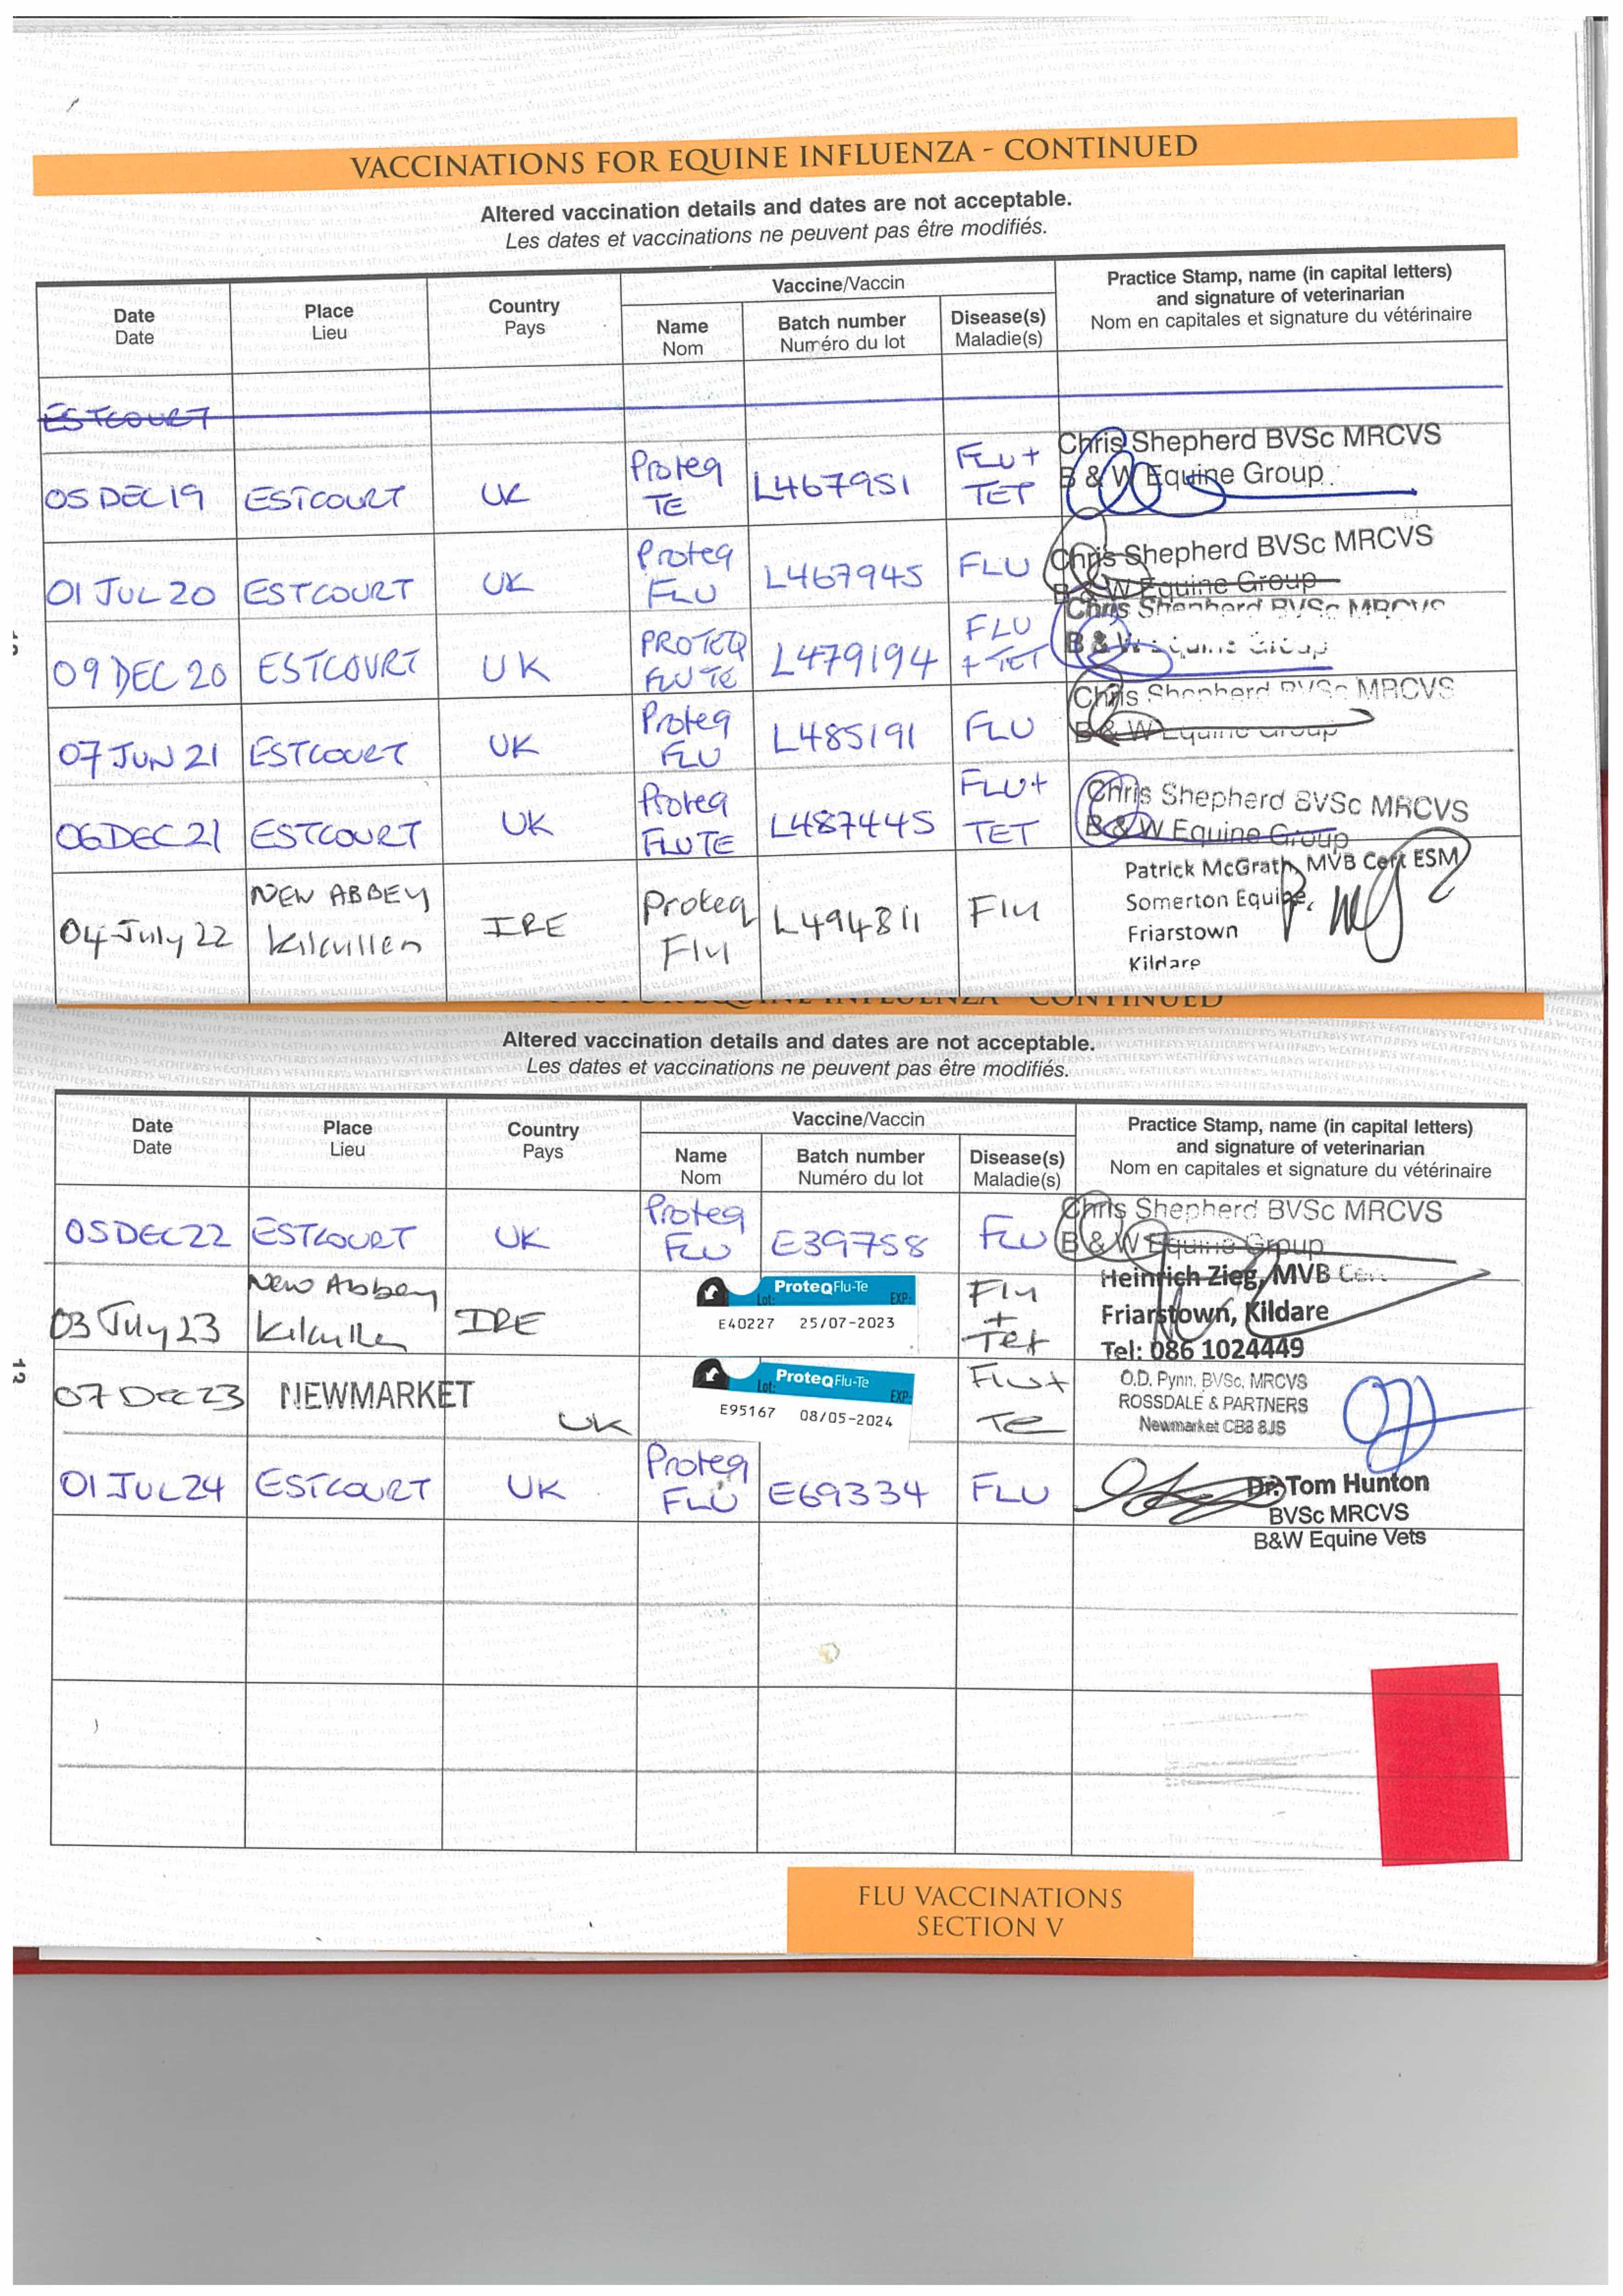 VACCINATIONS FOR EQUINE INFLUENZA - CONTINUED
Altered vaccination details and dates are not acceptable.
Les dates et vaccinations ne peuvent pas être modifiés.
Date Date Place Lieu Country Pays Vaccine/Vaccin Name Nom Batch number Numéro du lot Disease(s) Maladie(s) Practice Stamp, name (in capital letters) and signature of veterinarian Nom en capitales et signature du vétérinaire
ESTCOURT
05 DEC 19 ESTCOURT UK Proteq TE L467951 FLU + TET Chris Shepherd BVSc MRCVS B & W Equine Group
01 JUL 20 ESTCOURT UK Proteq FLU L467945 FLU Chris Shepherd BVSc MRCVS B & W Equine Group
09 DEC 20 ESTCOURT UK PROTEQ FLUTE L479194 FLU + TET Chris Shepherd BVSc MRCVS B & W Equine Group
07 JUN 21 ESTCOURT UK Proteq FLU L485191 FLU Chris Shepherd BVSc MRCVS B & W Equine Group
06 DEC 21 ESTCOURT UK Proteq FLUTE L487445 FLU + TET Chris Shepherd BVSc MRCVS B & W Equine Group
04 July 22 NEW ABBEY Kilcullen IRE Proteq Flu L494811 Flu Patrick McGrath, MVB Cert ESM Somerton Equine, Friarstown Kildare
CONTINUED
Altered vaccination details and dates are not acceptable.
Les dates et vaccinations ne peuvent pas être modifiés.
Date Date Place Lieu Country Pays Vaccine/Vaccin Name Nom Batch number Numéro du lot Disease(s) Maladie(s) Practice Stamp, name (in capital letters) and signature of veterinarian Nom en capitales et signature du vétérinaire
05 DEC 22 ESTCOURT UK Proteq FLU E39758 FLU Chris Shepherd BVSc MRCVS B & W Equine Group
03 July 23 New Abbey Kilcullen IRE ProteqFlu-Te Lot: EXP: E40227 25/07-2023 Flu + Tet Heinrich Zieg, MVB Friarstown, Kildare Tel: 086 1024449
07 DEC 23 NEWMARKET UK ProteqFlu-Te Lot: EXP: E95167 08/05-2024 Flu + Te O.D. Pynn, BVSc, MRCVS ROSSDALE & PARTNERS Newmarket CB8 8JS
01 JUL 24 ESTCOURT UK Proteq FLU E69334 FLU Dr. Tom Hunton BVSc MRCVS B&W Equine Vets
FLU VACCINATIONS
SECTION V